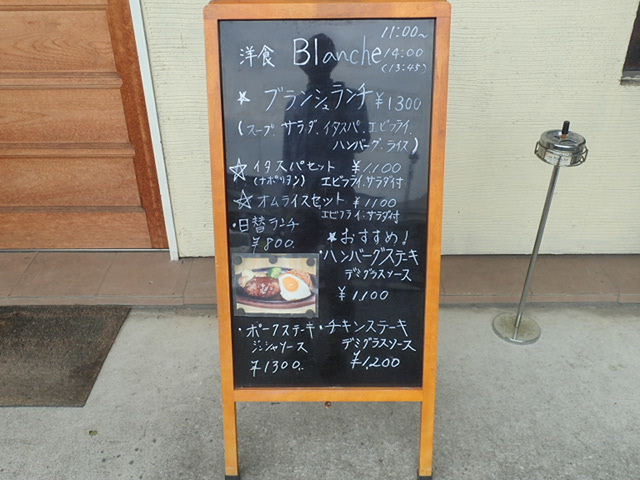 11:00~
洋食 Blanche 14:00
(13:45)
★ ブランシュランチ ¥1300
(スープ、サラダ、イタスパ、エビフライ、
ハンバーグ、ライス)
☆イタスパセット ¥1100
(ナポリタン) エビフライ、サラダ付
☆オムライスセット ¥1100
エビフライ、サラダ付
・日替ランチ
¥800
★おすすめ!
・ハンバーグステーキ
デミグラスソース
¥1100
・ポークステーキ
ジンジャソース
¥1300
・チキンステーキ
デミグラスソース
¥1,200